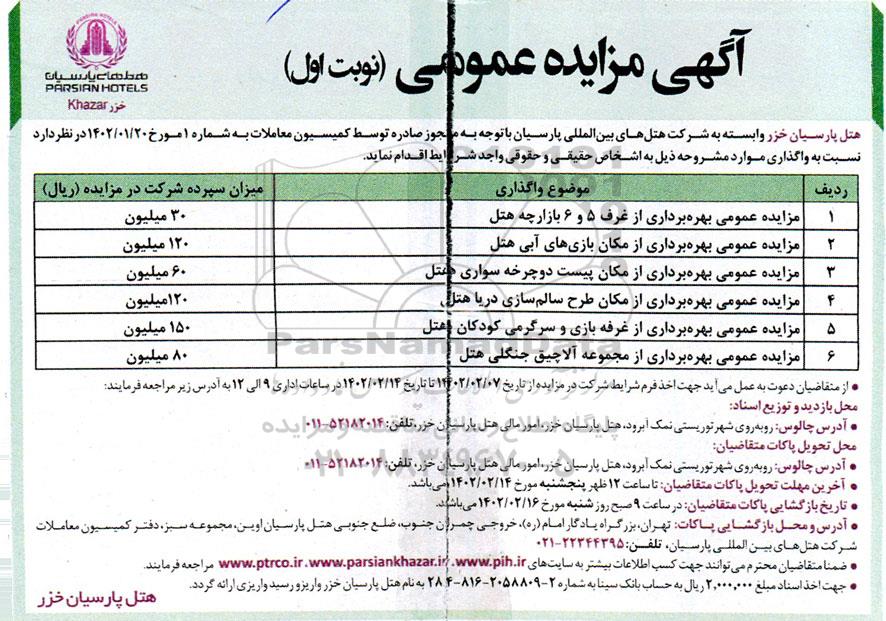 آگهی مزایده عمومی (نوبت اول)
PARSIAN HOTELS
هتلهای پارسیان
PARSIAN HOTELS
خزر Khazar
هتل پارسیان خزر وابسته به شرکت هتل‌های بین‌المللی پارسیان با توجه به مجوز صادره توسط کمیسیون معاملات به شماره ۱ مورخ ۱۴۰۲/۰۱/۲۰ در نظر دارد
نسبت به واگذاری موارد مشروحه ذیل به اشخاص حقیقی و حقوقی واجد شرایط اقدام نماید.
ردیف موضوع واگذاری میزان سپرده شرکت در مزایده (ریال)
۱ مزایده عمومی بهره‌برداری از غرف ۵ و ۶ بازارچه هتل ۳۰ میلیون
۲ مزایده عمومی بهره‌برداری از مکان بازی‌های آبی هتل ۱۲۰ میلیون
۳ مزایده عمومی بهره‌برداری از مکان پیست دوچرخه سواری هتل ۶۰ میلیون
۴ مزایده عمومی بهره‌برداری از مکان طرح سالم‌سازی دریا هتل ۱۲۰میلیون
۵ مزایده عمومی بهره‌برداری از غرفه بازی و سرگرمی کودکان هتل ۱۵۰ میلیون
۶ مزایده عمومی بهره‌برداری از مجموعه آلاچیق جنگلی هتل ۸۰ میلیون
• از متقاضیان دعوت به عمل می‌آید جهت اخذ فرم شرایط شرکت در مزایده از تاریخ ۱۴۰۲/۰۲/۰۷ تا تاریخ ۱۴۰۲/۰۲/۱۴ در ساعات اداری ۹ الی ۱۲ به آدرس زیر مراجعه فرمایند:
محل بازدید و توزیع اسناد:
• آدرس چالوس: روبه‌روی شهر توریستی نمک آبرود، هتل پارسیان خزر، امور مالی هتل پارسیان خزر، تلفن: ۵۲۱۸۲۰۱۴-۰۱۱
محل تحویل پاکات متقاضیان:
• آدرس چالوس: روبه‌روی شهر توریستی نمک آبرود، هتل پارسیان خزر، امور مالی هتل پارسیان خزر، تلفن: ۵۲۱۸۲۰۱۴-۰۱۱
• آخرین مهلت تحویل پاکات متقاضیان: تا ساعت ۱۲ ظهر پنجشنبه مورخ ۱۴۰۲/۰۲/۱۴ می‌باشد.
• تاریخ بازگشایی پاکات متقاضیان: در ساعت ۹ صبح روز شنبه مورخ ۱۴۰۲/۰۲/۱۶ می‌باشد.
• آدرس و محل بازگشایی پاکات: تهران، بزرگراه یادگار امام (ره)، خروجی چمران جنوب، ضلع جنوبی هتل پارسیان اوین، مجموعه سبز، دفتر کمیسیون معاملات
شرکت هتل‌های بین المللی پارسیان، تلفن: ۲۲۳۴۴۳۹۵-۰۲۱
• ضمنا متقاضیان محترم می‌توانند جهت کسب اطلاعات بیشتر به سایت‌های www.ptrco.ir ،www.parsiankhazar.ir ،www.pih.ir مراجعه فرمایند.
• جهت اخذ اسناد مبلغ ۲,۰۰۰,۰۰۰ ریال به حساب بانک سینا به شماره ۲-۲۰۵۸۸۰۹-۸۱۶-۲۸۴ به نام هتل پارسیان خزر واریز و رسید واریزی ارائه گردد.
هتل پارسیان خزر
ParsNamadData
پایگاه اطلاع رسانی مناقصه و مزایده
۰۲۱-۸۸۳۴۹۶۷۰-۵